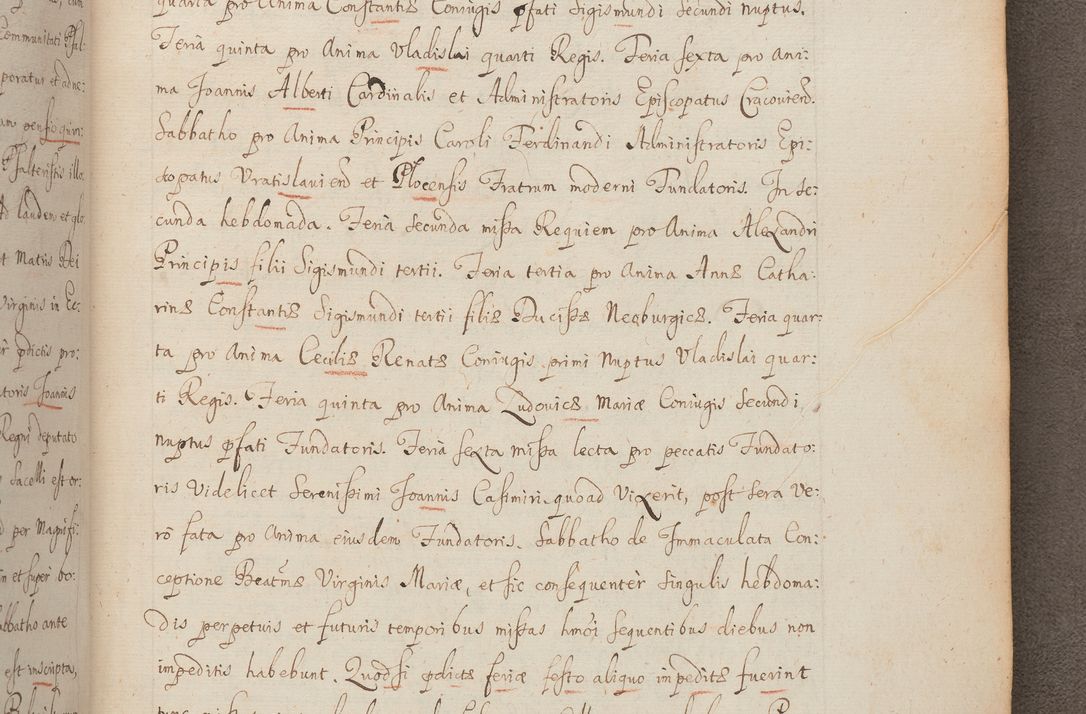 quarta pro Anima Constantiæ Coniugis pfati Sigismundi Secundi nuptus.
Feria quinta pro Anima Vladislai quarti Regis. Feria sexta pro Ani:
ma Joannis Alberti Cardinalis et Administratoris Episcopatus Cracovien.
Sabbatho pro Anima Principis Caroli Ferdinandi Administratoris Epi:
scopatus Vratislavien et Plocensis Fratrum moderni Fundatoris. In Se:
cunda hebdomada. Feria Secunda missa Requiem pro Anima Alexandri
Principis filii Sigismundi tertii. Feria tertia pro Anima Annæ Catha:
rinæ Constantiæ Sigismundi tertii filiæ Ducissæ Neoburgicæ. Feria quar:
ta pro Anima Cæciliæ Renatæ Coniugis primi Nuptus Vladislai quar:
ti Regis. Feria quinta pro Anima Ludovicæ Mariæ Coniugis Secundi
nuptus pfati Fundatoris. Feria sexta missa lecta pro peccatis Fundato:
ris Videlicet Serenissimi Joannis Casimiri quoad Vixerit, post Sera Ve:
ro fata pro Anima eiusdem Fundatoris. Sabbatho de Immaculata Con:
ceptione Beatmæ Virginis Mariæ, et sic consequenter Singulis hebdoma:
dis perpetuis et futuris temporibus missas hmoi sequentibus diebus non
impeditis habebunt. Quodsi pdictæ feriæ festo aliquo impeditæ fuerint
Communitati Psal
poratur et adne:
pensio quin:
Psalteristis illo
laudem et glo
Matris Dei
Virginis in Ec:
pdictis pro:
toris Joannis
Regni deputato
Sacelli est or:
per Magnifi:
et super bo:
abbatho ante
est inscripta,